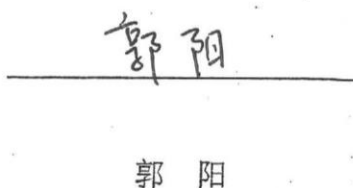 郭阳
郭 阳